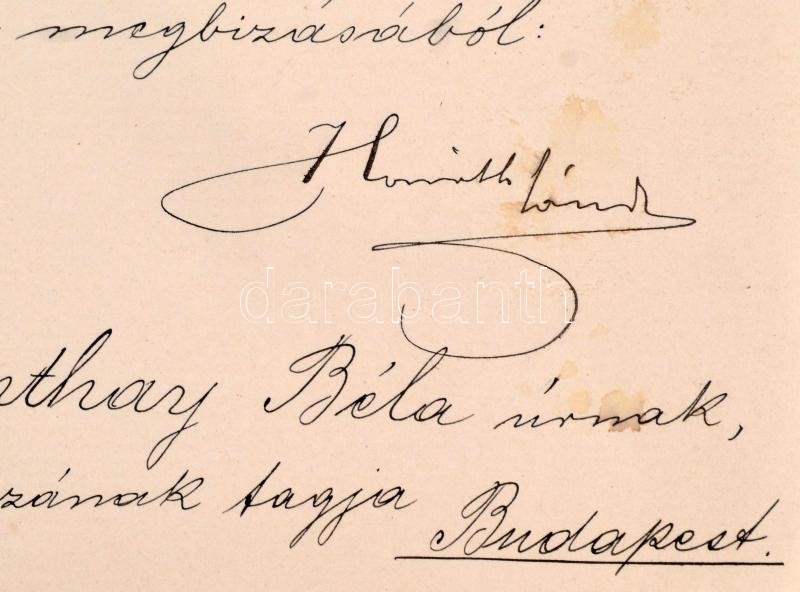 megbizásából:
Horváth János
darabanth
thay Béla úrnak,
zának tagja Budapest.